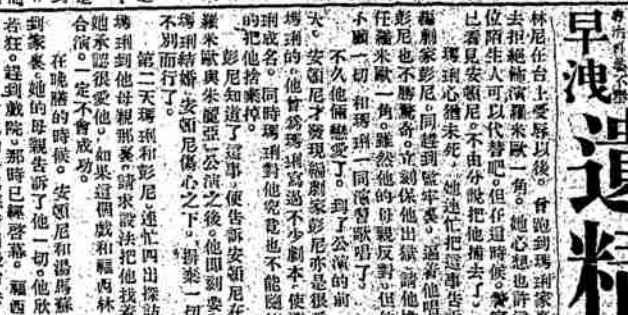 專治
早洩
遺精
林尼在台上受辱以後。曾跑到瑪琍家
去拒絕飾演羅米歐一角。她心想也許
位陌生人可以代替吧。但在這時候。警
已看見安頓尼。不由分說把他捕去了。
瑪琍心猶未死。她連忙把這事告訴
編劇家彭尼。同趕到監牢裏。逼着他唱
彭尼也不勝驚奇。立刻保他出獄。請他擔
任羅米歐一角。雖然他的母親反對。但他
不顧一切和瑪琍一同演習歌唱了。
不久他倆戀愛了。到了公演的前
大。安頓尼才發現編劇家彭尼亦是很
瑪琍的。他曾爲瑪琍寫過不少劇本。使
琍成名。同時瑪琍對他究竟也不能隨
的把他捨棄掉。
彭尼知道了這事。便告訴安頓尼在
羅米歐與朱麗亞公演之後。他即刻要
瑪琍結婚。安頓尼傷心之下。摒棄一切
不別而行了。
第二天瑪琍和彭尼。連忙四出探訪
瑪琍到他母親那裏。請求設法把他找
她承認很愛他。如果這個戲和福西林
合演。一定不會成功。
在晚膳的時候。安頓尼和湯馬蘇
到家裏。她的母親告訴了他一切。他欣
若狂。趕到戲院。那時已經啓幕。福西